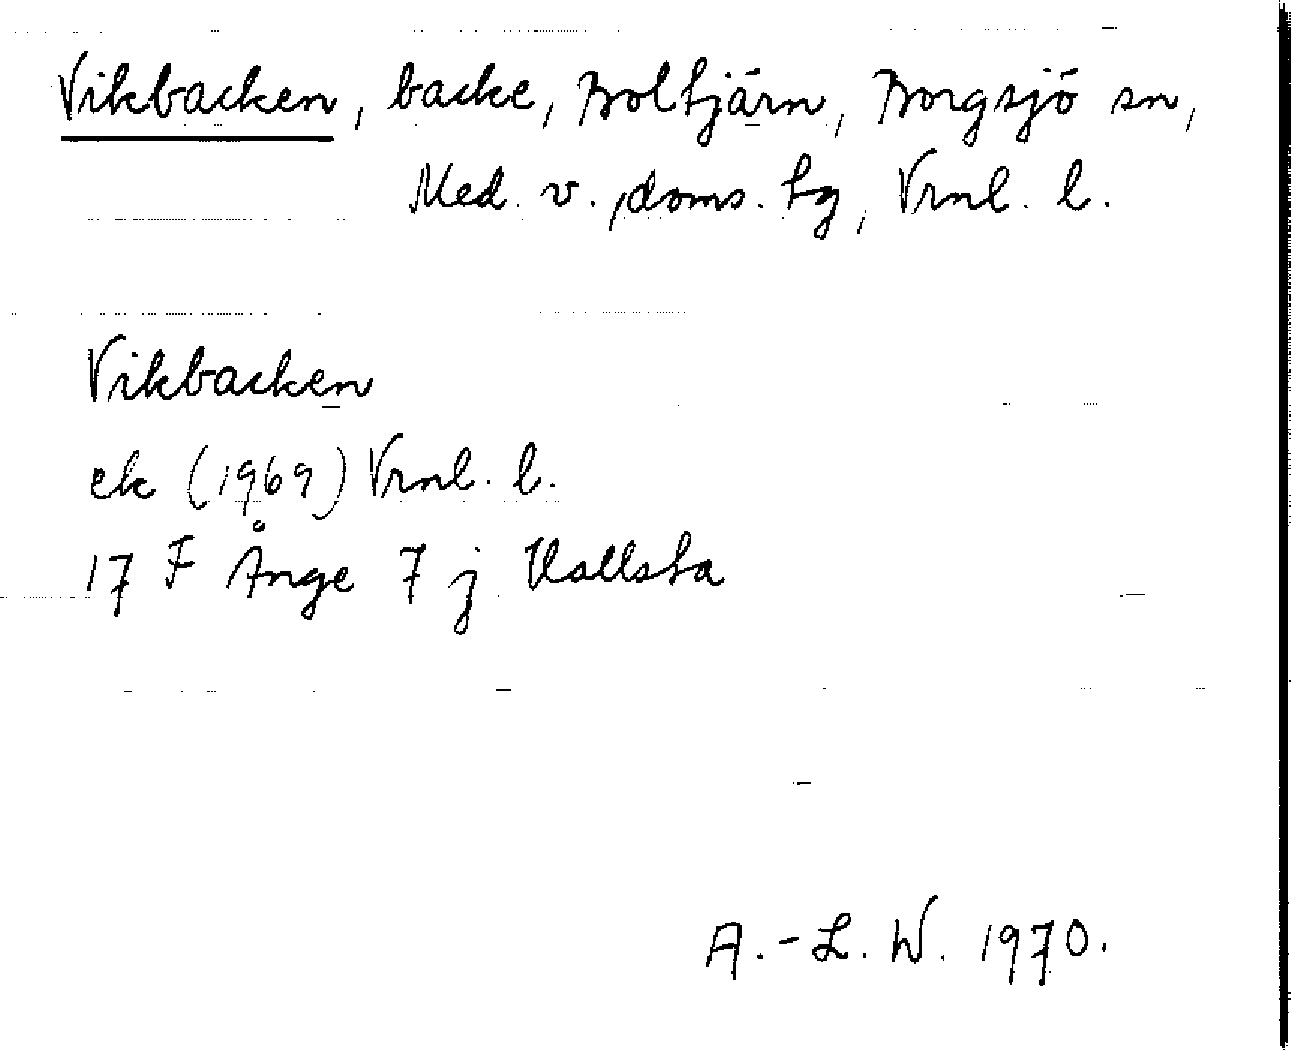 Vikbacken, backe, Boltjärn, Borgsjö sn,
Med. v. doms. tg, Vrnl. l.
Vikbacken
ek (1969) Vrnl. l.
17 F Ånge 7 j Hallsta
A.-L. W. 1970.